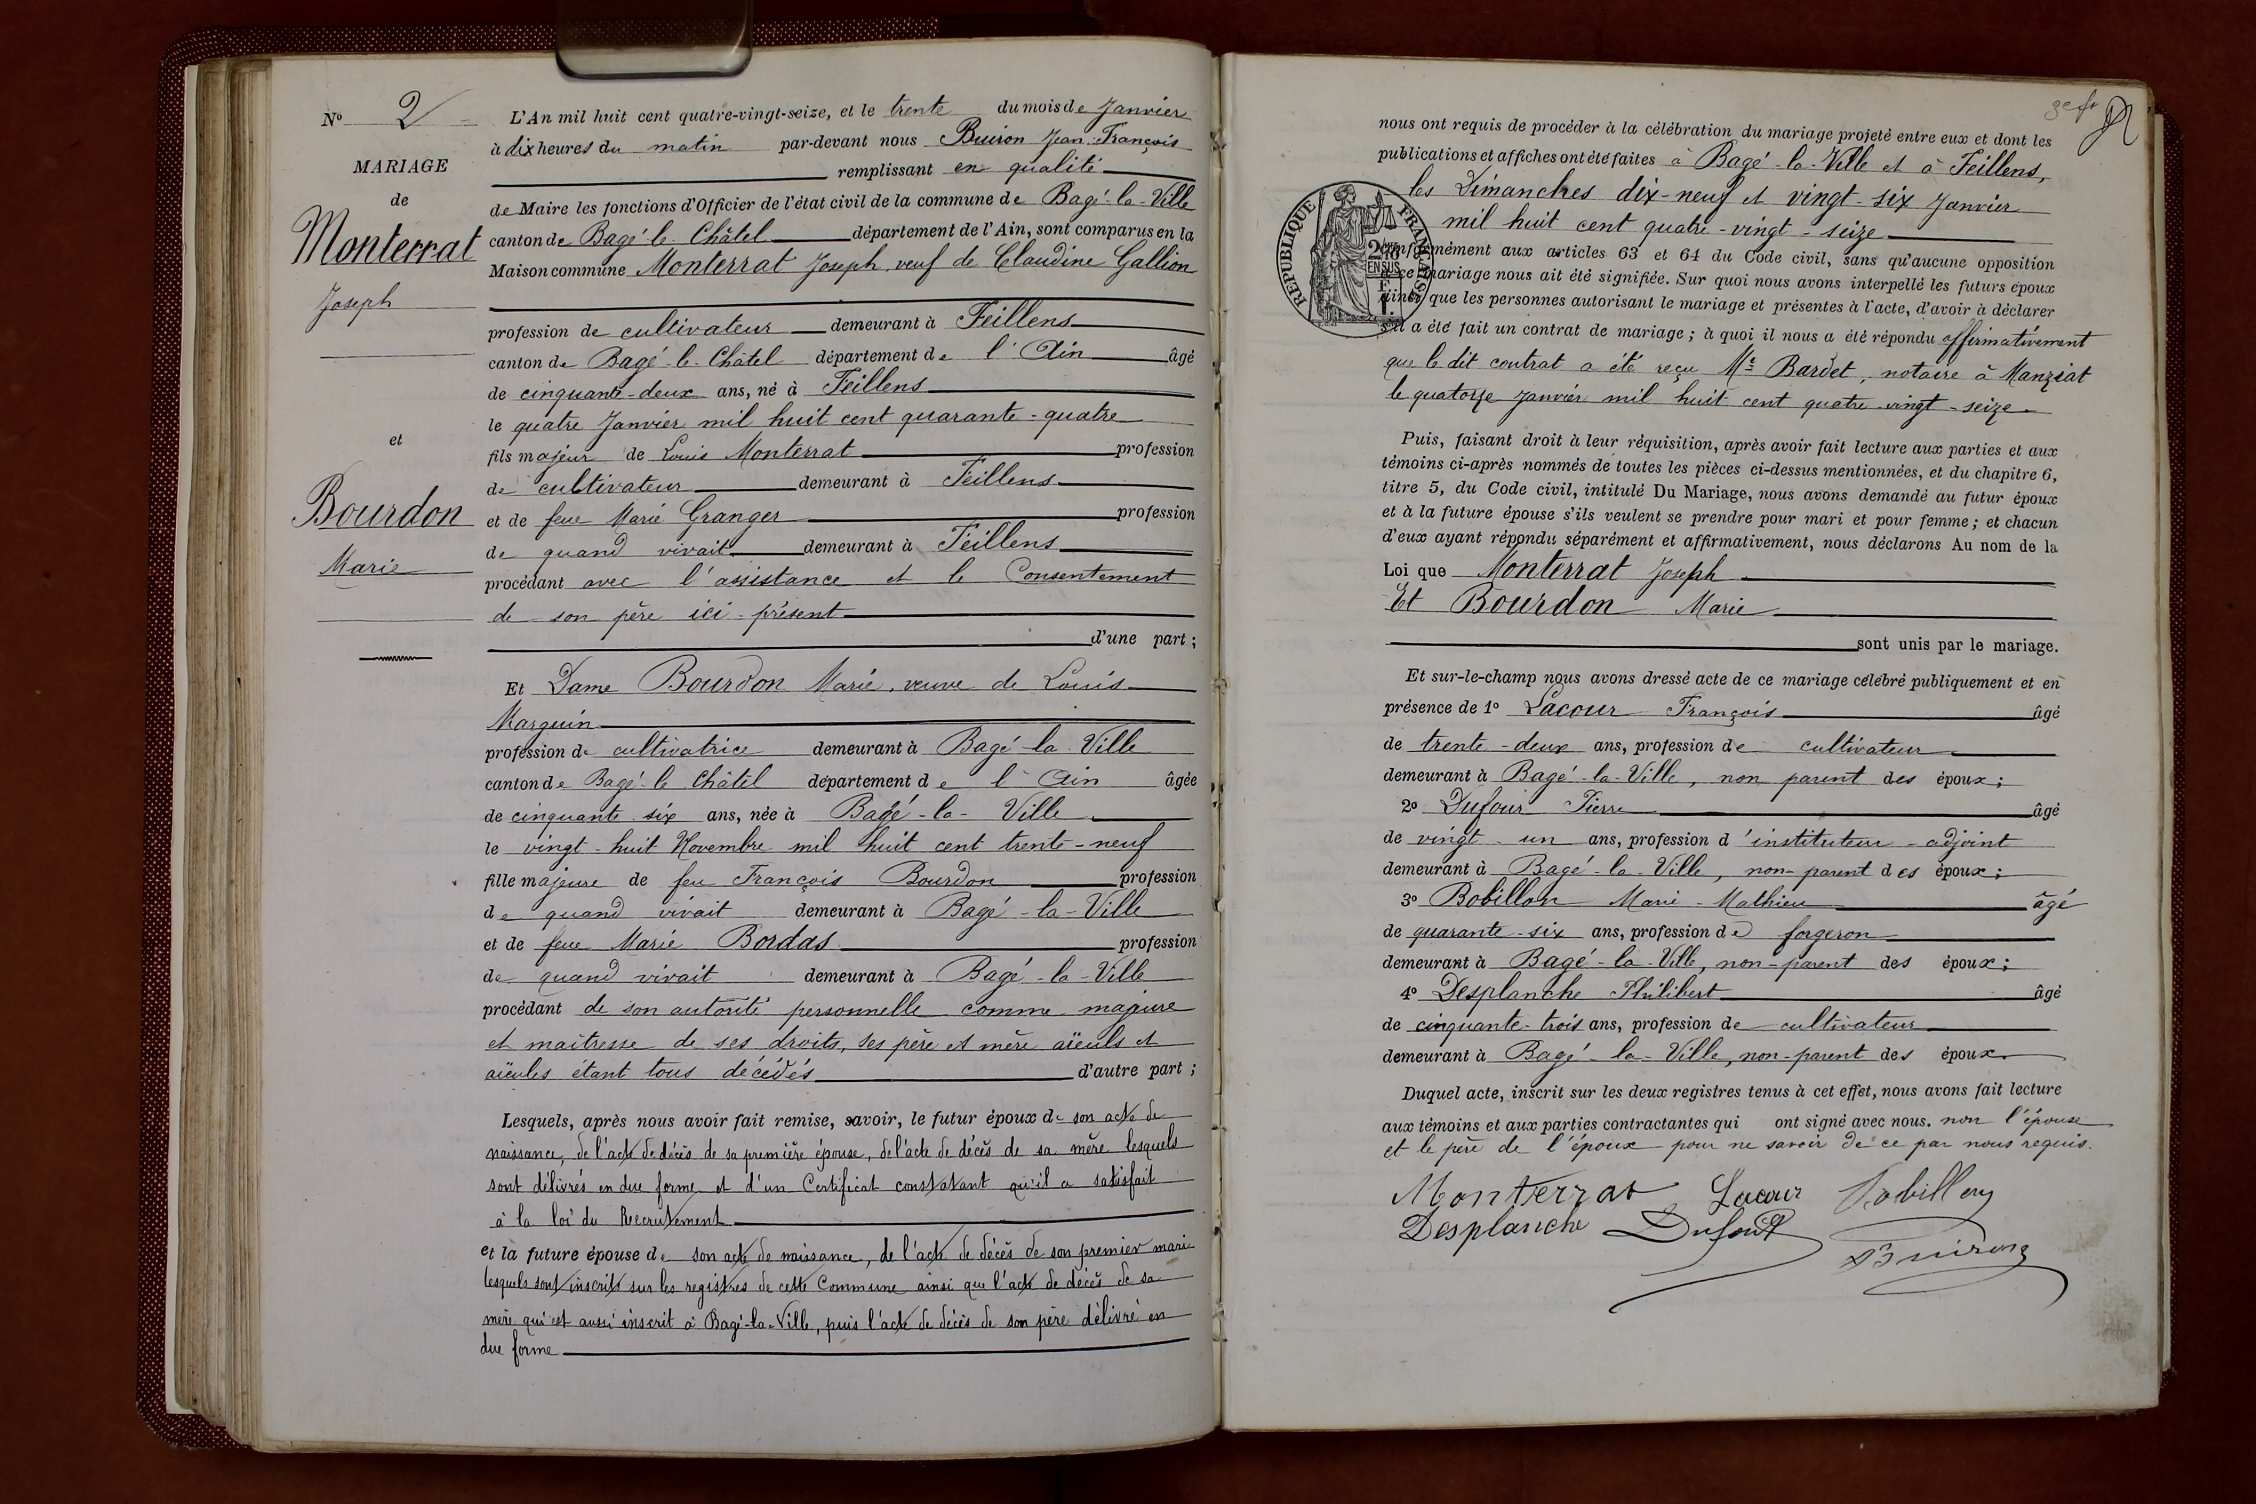 N° 2
MARIAGE
de
Monterrat
Joseph
et
Bourdon
Marie
L'An mil huit cent quatre-vingt-seize, et le trente du mois de Janvier
à dix heures du matin par-devant nous Buiron Jean-François
remplissant en qualité
de Maire les fonctions d'Officier de l'état civil de la commune de Bagé-la-Ville
canton de Bagé-le-Châtel département de l'Ain, sont comparus en la
Maison commune Monterrat Joseph, veuf de Claudine Gallion
profession de cultivateur demeurant à Feillens
canton de Bagé-le-Châtel département de l'Ain âgé
de cinquante-deux ans, né à Feillens
le quatre Janvier mil huit cent quarante-quatre
fils majeur de Louis Monterrat profession
de cultivateur demeurant à Feillens
et de feue Marie Granger profession
de quand vivait demeurant à Feillens
procédant avec l'assistance et le Consentement
de son père ici-présent
d'une part ;
Et Dame Bourdon Marie, veuve de Louis
Marguin
profession de cultivatrice demeurant à Bagé-la-Ville
canton de Bagé-le-Châtel département de l'Ain âgée
de cinquante-six ans, née à Bagé-la-Ville
le vingt-huit Novembre mil huit cent trente-neuf
fille majeure de feu François Bourdon profession
de quand vivait demeurant à Bagé-la-Ville
et de feue Marie Bordas profession
de quand vivait demeurant à Bagé-la-Ville
procédant de son autorité personnelle comme majeure
et maîtresse de ses droits, ses père et mère aïeuls et
aïeules étant tous décédés d'autre part ;
Lesquels, après nous avoir fait remise, savoir, le futur époux de son acte de
naissance, de l'acte de décès de sa première épouse, de l'acte de décès de sa mère lesquels
sont délivrés en due forme et d'un Certificat constatant qu'il a satisfait
à la loi du Recrutement
et la future épouse de son acte de naissance, de l'acte de décès de son premier mari
lesquels sont inscrits sur les registres de cette Commune ainsi que l'acte de décès de sa
mère qui est aussi inscrit à Bagé-la-Ville, puis l'acte de décès de son père délivré en
due forme
3e f°
nous ont requis de procéder à la célébration du mariage projeté entre eux et dont les
publications et affiches ont été faites à Bagé-la-Ville et à Feillens,
les Dimanches dix-neuf et vingt-six Janvier
mil huit cent quatre-vingt-seize
RÉPUBLIQUE FRANÇAISE
conformément aux articles 63 et 64 du Code civil, sans qu'aucune opposition
à ce mariage nous ait été signifiée. Sur quoi nous avons interpellé les futurs époux
ainsi que les personnes autorisant le mariage et présentes à l'acte, d'avoir à déclarer
s'il a été fait un contrat de mariage ; à quoi il nous a été répondu affirmativement
que le dit contrat a été reçu Me Bardet, notaire à Manziat
le quatorze Janvier mil huit cent quatre-vingt-seize.
Puis, faisant droit à leur réquisition, après avoir fait lecture aux parties et aux
témoins ci-après nommés de toutes les pièces ci-dessus mentionnées, et du chapitre 6,
titre 5, du Code civil, intitulé Du Mariage, nous avons demandé au futur époux
et à la future épouse s'ils veulent se prendre pour mari et pour femme ; et chacun
d'eux ayant répondu séparément et affirmativement, nous déclarons Au nom de la
Loi que Monterrat Joseph
Et Bourdon Marie
sont unis par le mariage.
Et sur-le-champ nous avons dressé acte de ce mariage célébré publiquement et en
présence de 1° Lacour François âgé
de trente-deux ans, profession de cultivateur
demeurant à Bagé-la-Ville, non parent des époux ;
2° Dufour Pierre âgé
de vingt-un ans, profession d'instituteur-adjoint
demeurant à Bagé-la-Ville, non-parent des époux ;
3° Bobillon Marie-Mathieu âgé
de quarante-six ans, profession de forgeron
demeurant à Bagé-la-Ville, non-parent des époux ;
4° Desplanche Philibert âgé
de cinquante-trois ans, profession de cultivateur
demeurant à Bagé-la-Ville, non-parent des époux.
Duquel acte, inscrit sur les deux registres tenus à cet effet, nous avons fait lecture
aux témoins et aux parties contractantes qui ont signé avec nous. non l'épouse
et le père de l'époux pour ne savoir de ce par nous requis.
Monterrat Lacour Bobillon
Desplanche Dufour
Buiron